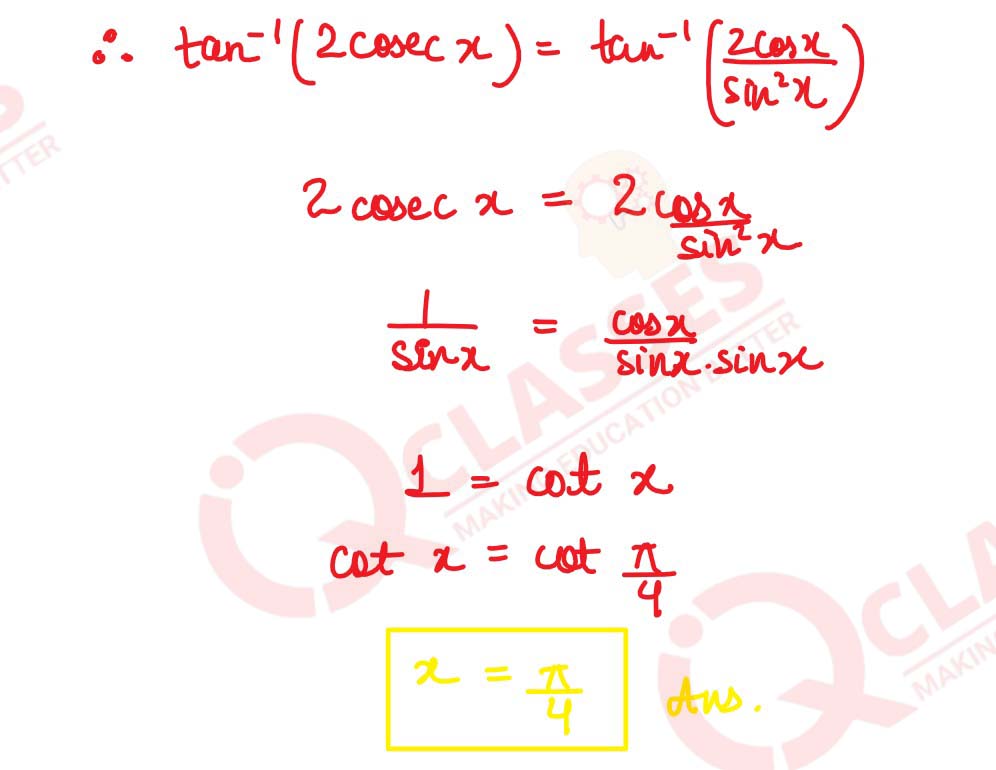 ∴ tan⁻¹(2cosec x) = tan⁻¹(2cosx/sin²x)
2cosec x = 2cosx/sin²x
1/sinx = cosx/sinx.sinx
1 = cot x
cot x = cot π/4
x = π/4 Ans.
TTER
QCLASSES
MAKING EDUCATION BETTER
QCLA
MAKIN